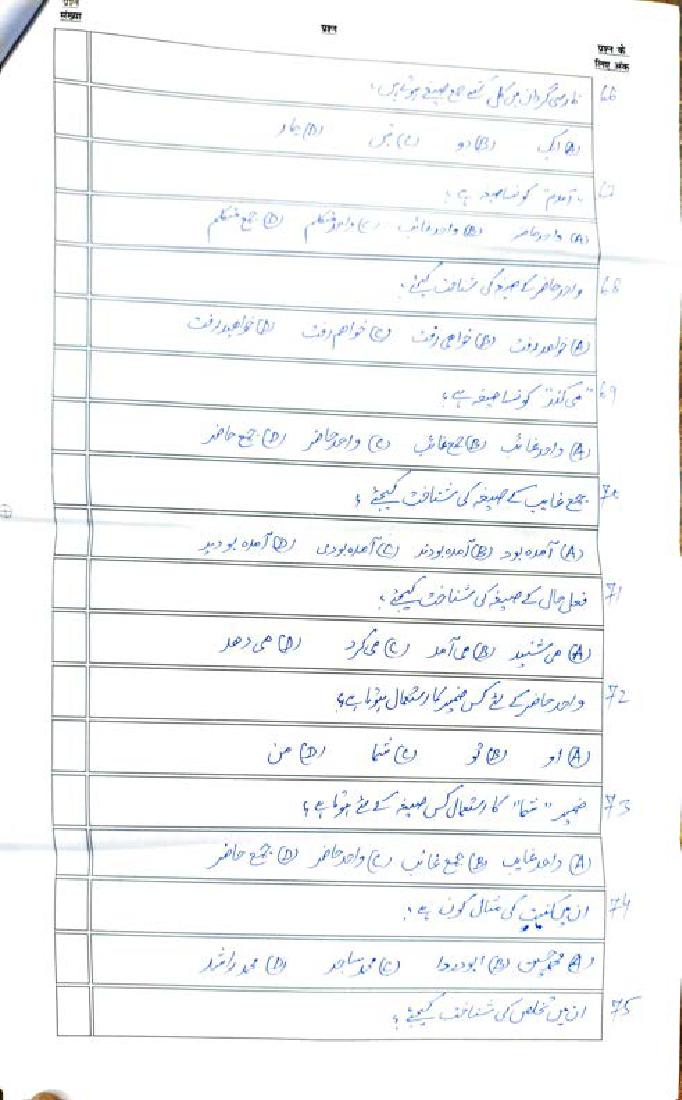 प्रश्न संख्या
प्रश्न
प्रश्न के लिए अंक
66 فارسی گردان میں کل کتنے جمع صیغے ہوتے ہیں؟
(A) ایک (B) دو (C) تین (D) چار
67 "آمدم" کونسا صیغہ ہے؟
(A) واحد حاضر (B) واحد غائب (C) واحد متکلم (D) جمع متکلم
68 واحد حاضر کے صیغہ کی شناخت کیجئے؟
(A) خواهد رفت (B) خواهی رفت (C) خواهم رفت (D) خواهید رفت
69 "می کند" کونسا صیغہ ہے؟
(A) واحد غائب (B) جمع غائب (C) واحد حاضر (D) جمع حاضر
70 جمع غایب کے صیغہ کی شناخت کیجئے؟
(A) آمدہ بود (B) آمدہ بودند (C) آمدہ بودی (D) آمدہ بودید
71 فعل حال کے صیغہ کی شناخت کیجئے؟
(A) می شنید (B) می آمد (C) می کرد (D) می دھد
72 واحد حاضر کے لئے کس ضمیر کا استعمال ہوتا ہے؟
(A) او (B) تو (C) شما (D) من
73 ضمیر "شما" کا استعمال کس صیغہ کے لئے ہوتا ہے؟
(A) واحد غایب (B) جمع غائب (C) واحد حاضر (D) جمع حاضر
74 ان میں کنیت کی مثال کون ہے؟
(A) محمد حسین (B) ابودردا (C) محمد ساجد (D) محمد راشد
75 ان میں تخلص کی شناخت کیجئے؟